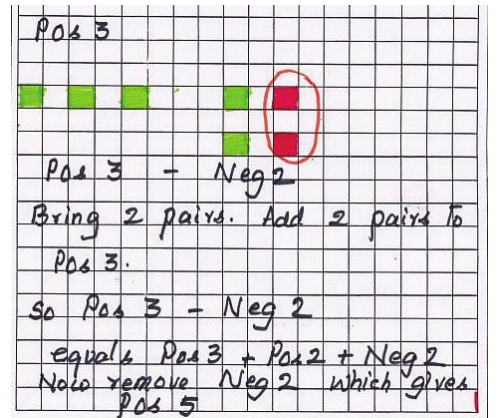 Pos 3
Pos 3 - Neg 2
Bring 2 pairs. Add 2 pairs To
Pos 3.
So Pos 3 - Neg 2
equals Pos 3 + Pos 2 + Neg 2
Now remove Neg 2 which gives
Pos 5